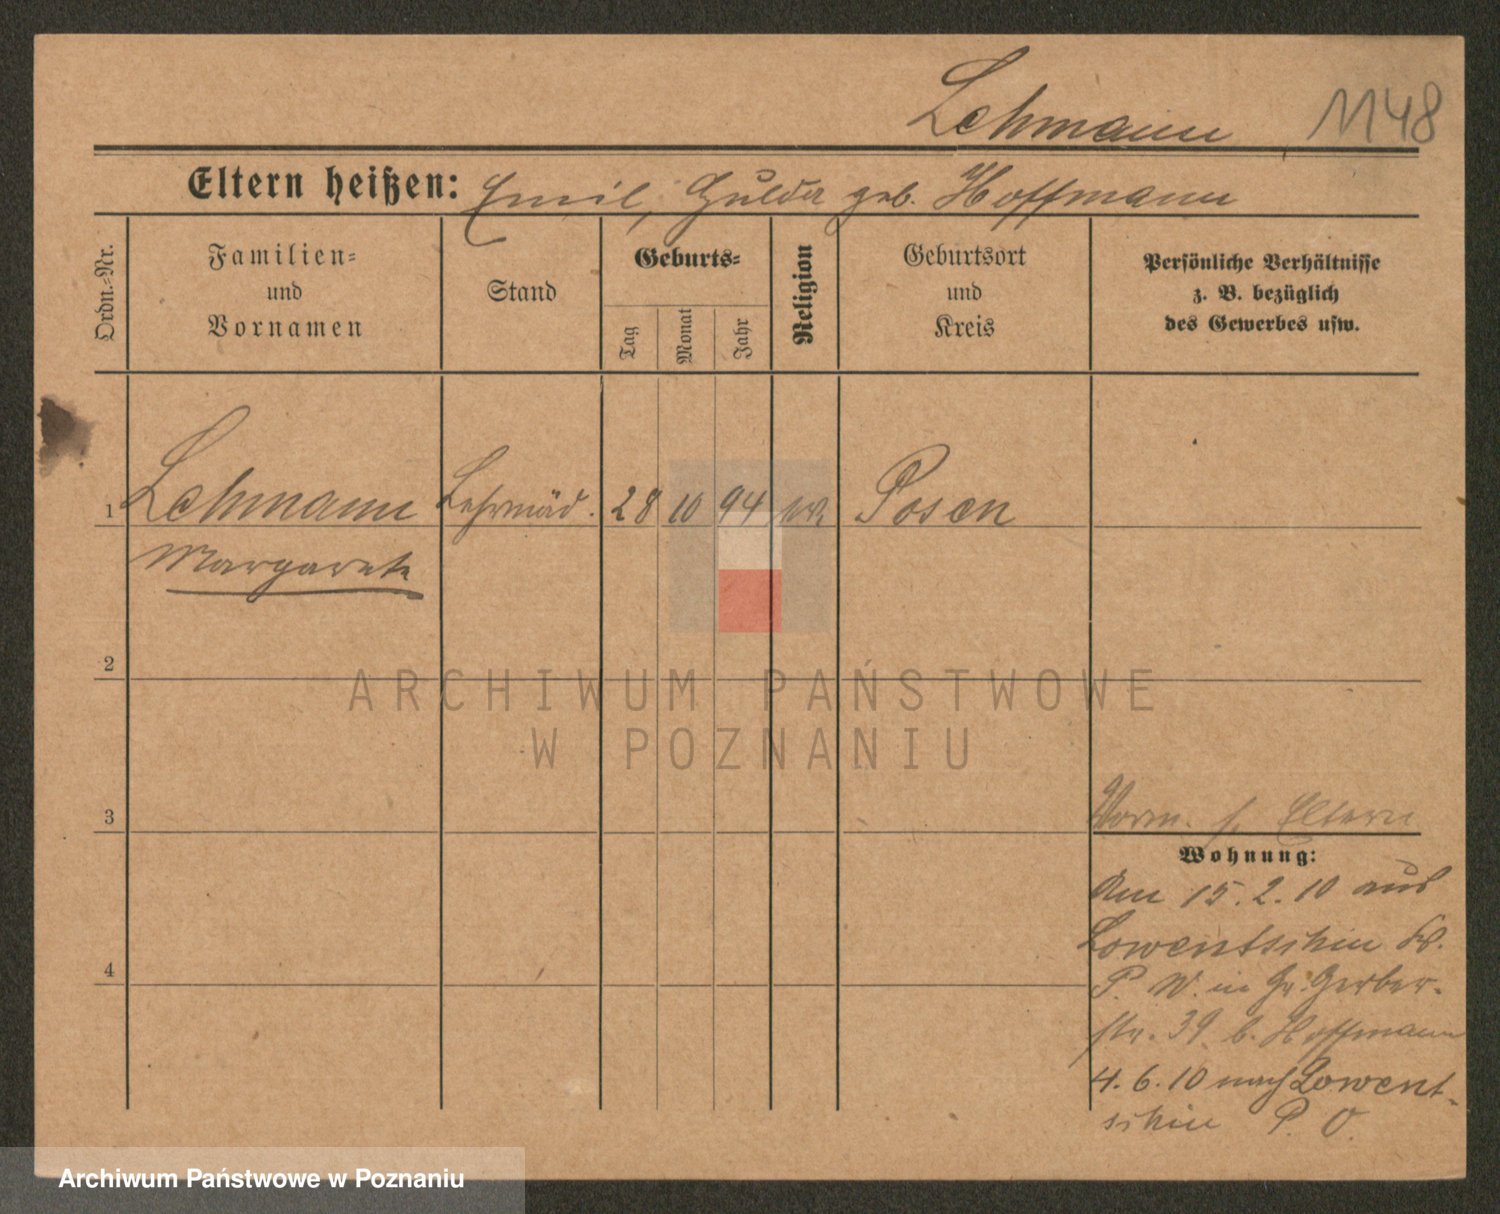 Lehmann 1148
Eltern heißen: Emil, Hulda geb. Hoffmann
Ordn.-Nr.
Familien-
und
Vornamen
Stand
Geburts-
Tag
Monat
Jahr
Religion
Geburtsort
und
Kreis
Persönliche Verhältnisse
z. B. bezüglich
des Gewerbes usw.
1 Lehmann Lehrmäd. 28 10 94 Posen
Margarete
2
ARCHIWUM PAŃSTWOWE
W POZNANIU
3
Vorm. s. Eltern
Wohnung:
Am 15.2.10 aus
Lowentschin Kr.
4
P. W. in Gr. Gerber-
str. 39 b. Hoffmann
4.6.10 nach Lowent-
schin P. O.
Archiwum Państwowe w Poznaniu